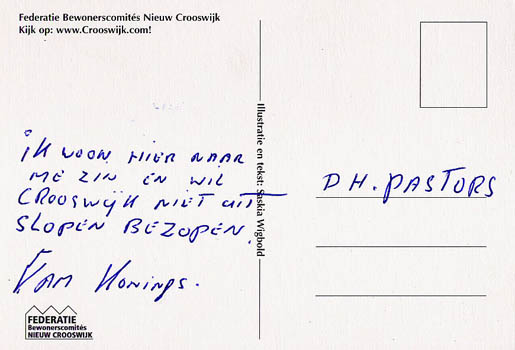 Federatie Bewonerscomités Nieuw Crooswijk
Kijk op: www.Crooswijk.com!
iK WOON HIER NAAR
ME ZIN EN WIL
CROOSWIJK NIET UIT
SLOPEN BEZOPEN.
FAM Konings.
Illustratie en tekst: Saskia Wigbold
DH. PASTORS
FEDERATIE
Bewonerscomités
NIEUW CROOSWIJK